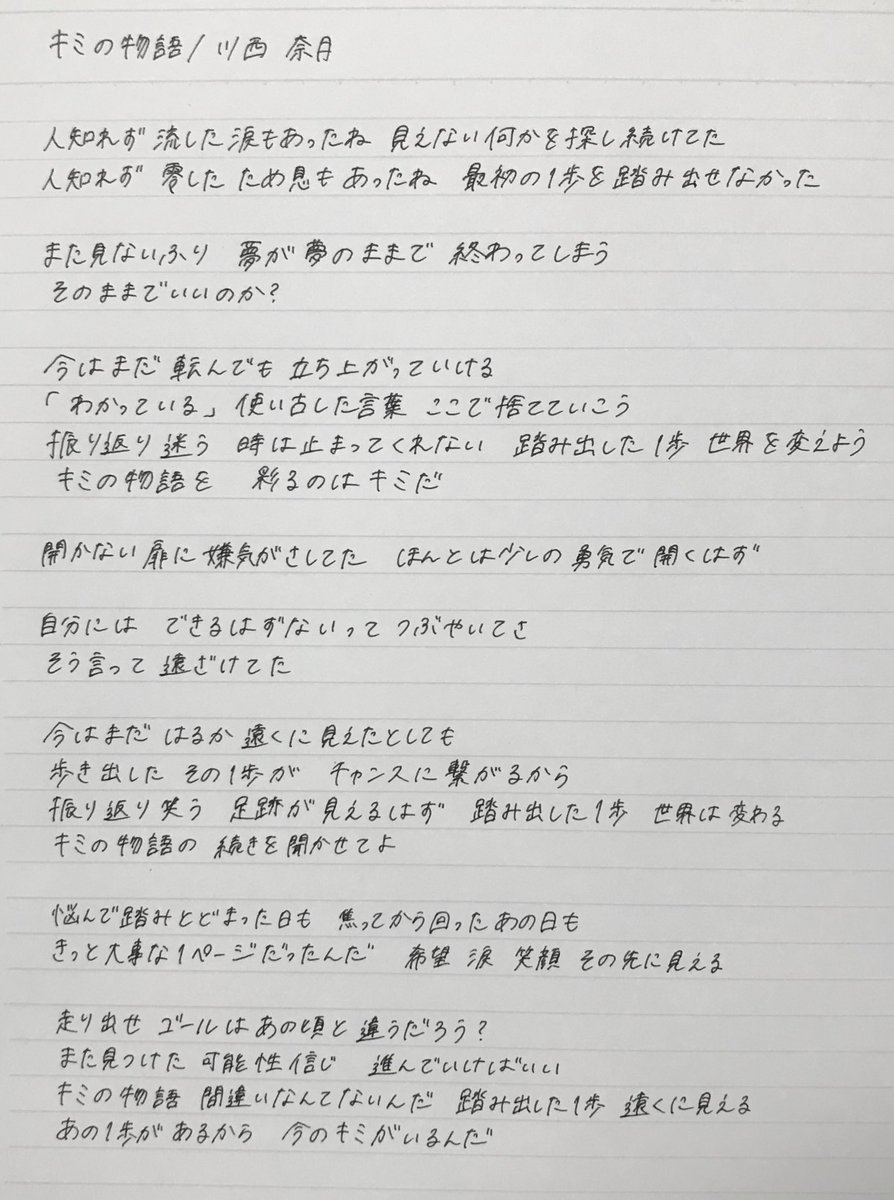 キミの物語/川西 奈月
人知れず 流した 涙もあったね 見えない何かを探し続けてた
人知れず 零した ため息も あったね 最初の1歩を踏み出せなかった
また見ないふり 夢が夢のままで 終わってしまう
そのままでいいのか?
今はまだ 転んでも 立ち上がっていける
「わかっている」使い古した言葉 ここで捨てていこう
振り返り 迷う 時は止まってくれない 踏み出した1歩 世界を変えよう
キミの物語を 彩るのはキミだ
開かない扉に嫌気がさしてた ほんとは少しの勇気で開くはず
自分には できるはずないって つぶやいてさ
そう言って 遠ざけてた
今はまだ はるか遠くに見えたとしても
歩き出した その1歩が チャンスに繋がるから
振り返り笑う 足跡が見えるはず 踏み出した1歩 世界は変わる
キミの物語の 続きを聞かせてよ
悩んで踏みとどまった日も 焦ってから回ったあの日も
きっと大事な1ページだったんだ 希望 涙 笑顔 その先に見える
走り出せ ゴールはあの頃と違うだろう?
また見つけた 可能性信じ 進んでいけばいい
キミの物語 間違いなんてないんだ 踏み出した1歩 遠くに見える
あの1歩が あるから 今のキミがいるんだ